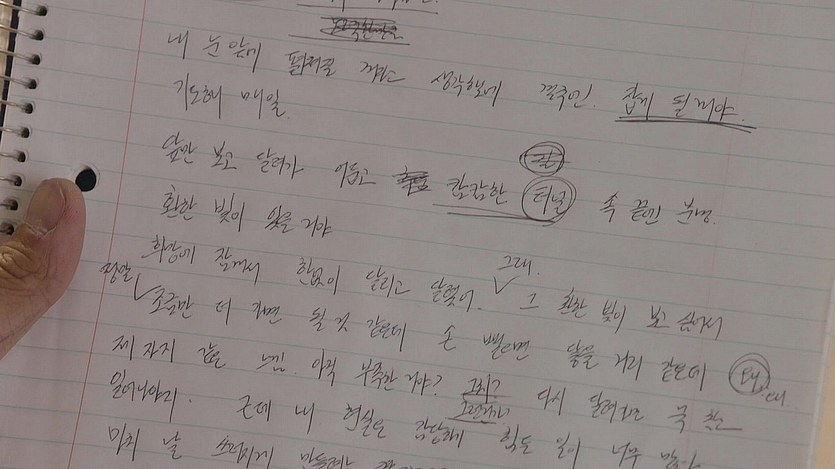 내 눈앞에 펼쳐질 거라 생각했네 결국엔. 찾게 될 거야.
기도해 매일.
앞만 보고 달려가 어둡고 캄캄한 터널 속 끝엔 분명.
환한 빛이 있을 거야
희망에 잠겨서 한없이 달리고 달렸어. 그래. 그 환한 빛이 보고 싶어서
정말 조금만 더 가면 될 것 같은데 손 뻗으면 닿을 거리 같은데
제자리 같은 느낌. 아직 부족한 거야? 그치? 다시 달려
일어나야지. 근데 내 현실은 감당하기 힘든 일이 너무 많아
마치 날 쓰러지게 만들려는